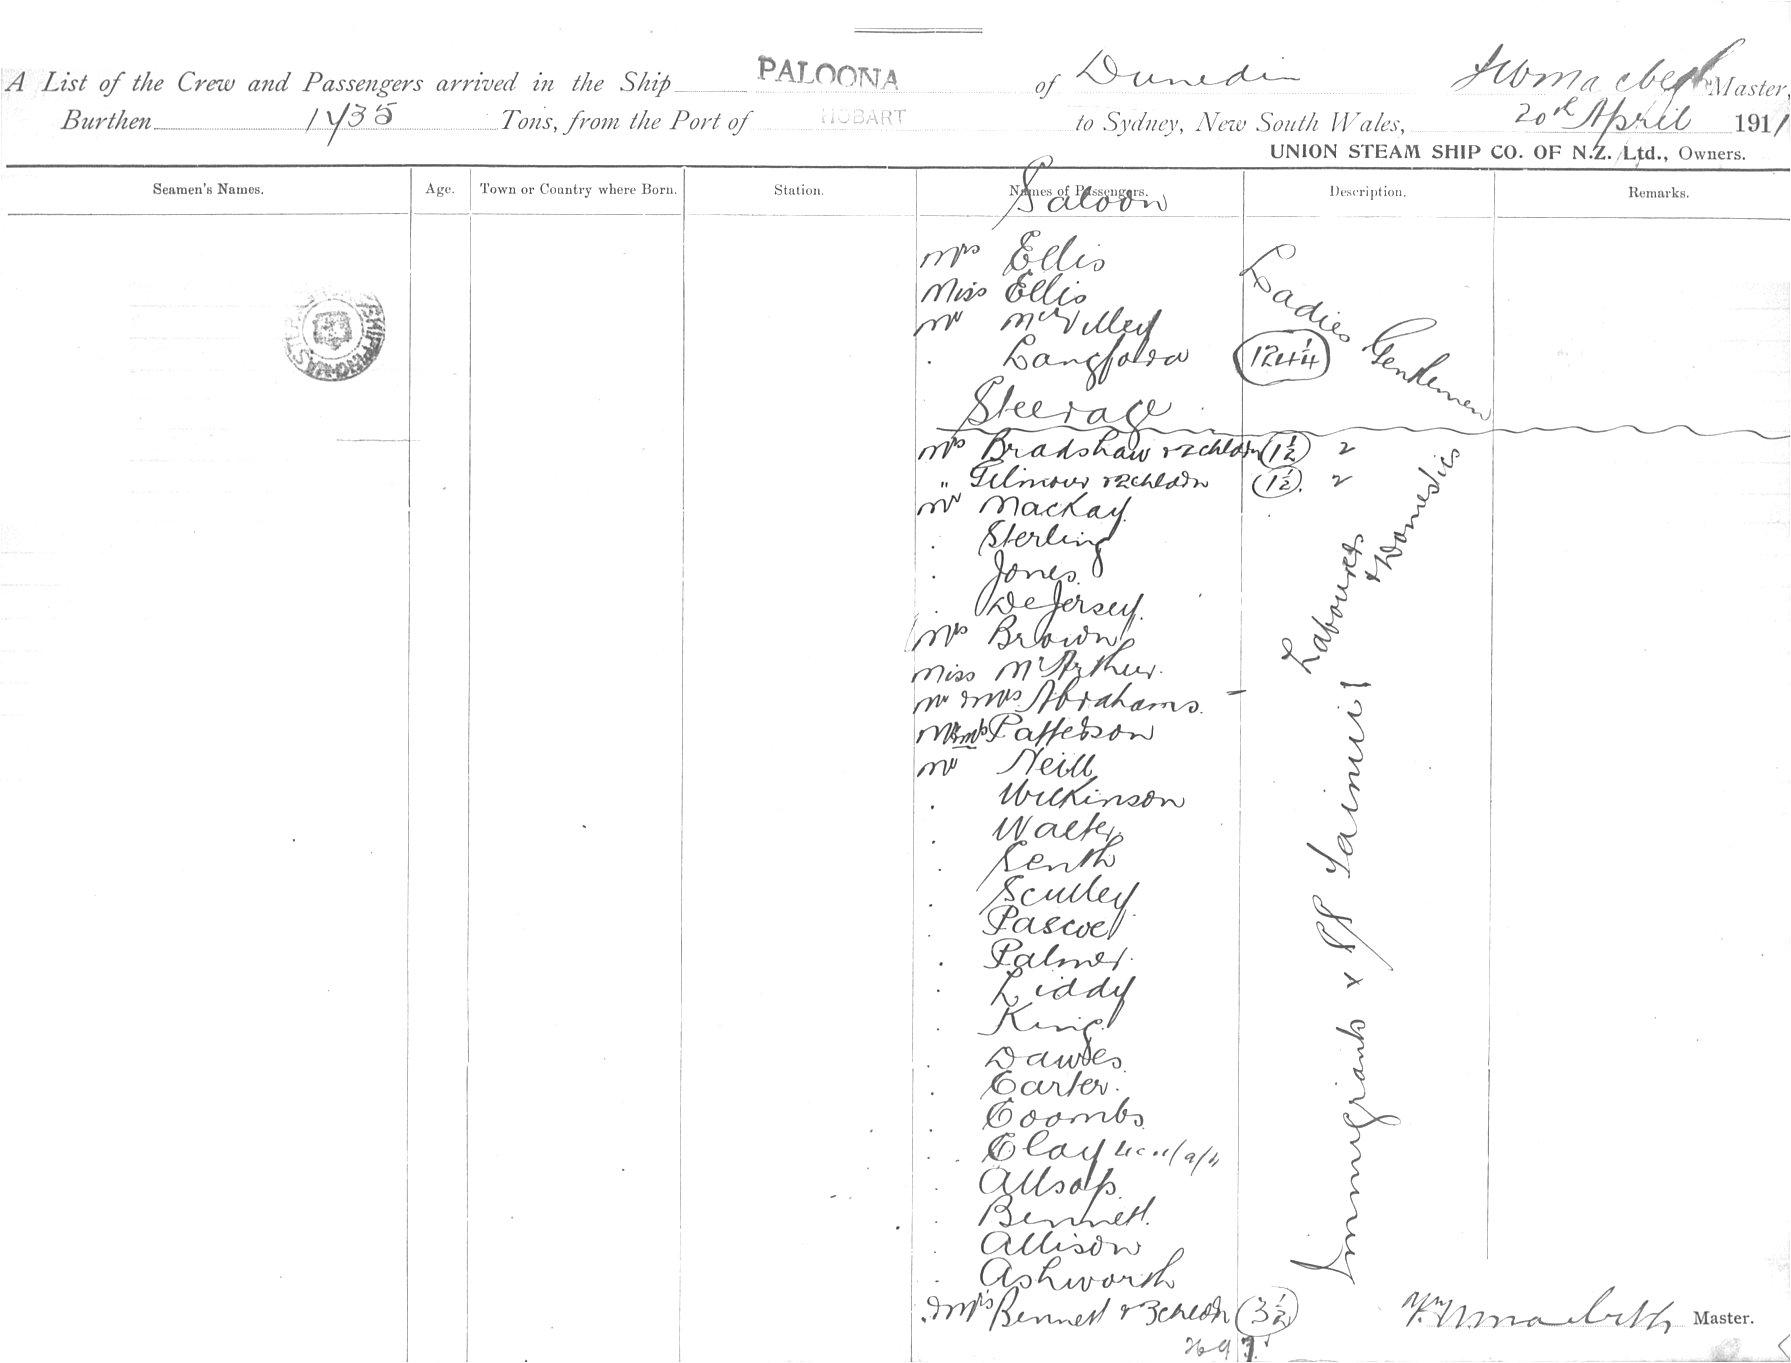 A List of the Crew and Passengers arrived in the Ship PALOONA of Dunedin Master,
Burthen 1435 Tons, from the Port of HOBART to Sydney, New South Wales, 20th April 1911
UNION STEAM SHIP CO. OF N.Z. Ltd., Owners.
Seamen's Names. Age. Town or Country where Born. Station. Names of Passengers. Description. Remarks.
Saloon
Mrs Ellis
Miss Ellis
Mr McVilley
. Langford
Ladies Gentlemen
Steerage
Mrs Bradshaw & 2 childn 1½ 2
" Gilmour & 2 childn 1½ 2
Mr Mackay
. Sterling
. Jones
. De Jersey
Mrs Brown
Miss McArthur
Mr & Mrs Abrahams
Patterson
Mr Neill
. Wilkinson
. Walter
. Senth
. Sculley
. Pascoe
. Palmer
. Liddy
. King
. Dawes
. Carter
. Coombs
. Clay
. Allsop
. Bennett
. Allison
. Ashworth
. & Mrs Bennett & 3 childn 3½
Labourers & Domestics
Immigrants x SS Tainui
Master.